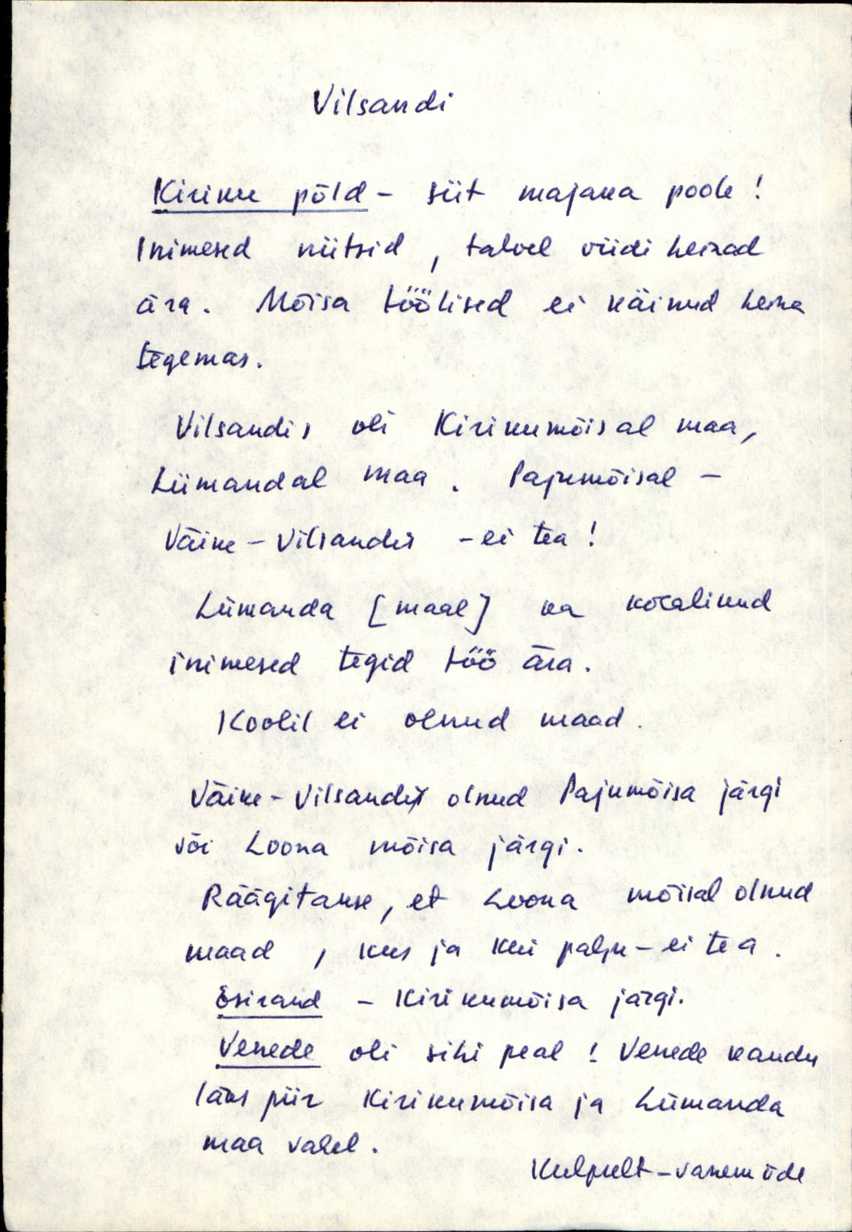 Vilsandi
Kiriku põld - siit majaka poole!
Inimesed niitsid, talvel viidi heinad
ära. Mõisa töölised ei käinud heina
tegemas.
Vilsandis oli Kirikumõisal maa,
Lümandal maa. Pajumõisal -
Väike-Vilsandis - ei tea!
Lümanda [maal] ka kohalikud
inimesed tegid töö ära.
Koolil ei olnud maad.
Väike-Vilsandi olnud Pajumõisa järgi
või Loona mõisa järgi.
Räägitakse, et Loona mõisal olnud
maad, kus ja kui palju - ei tea.
Esirand - Kirikumõisa järgi.
Venede oli sihi peal! Venede kandu
läks piir Kirikumõisa ja Lümanda
maa vahel.
vanem õde